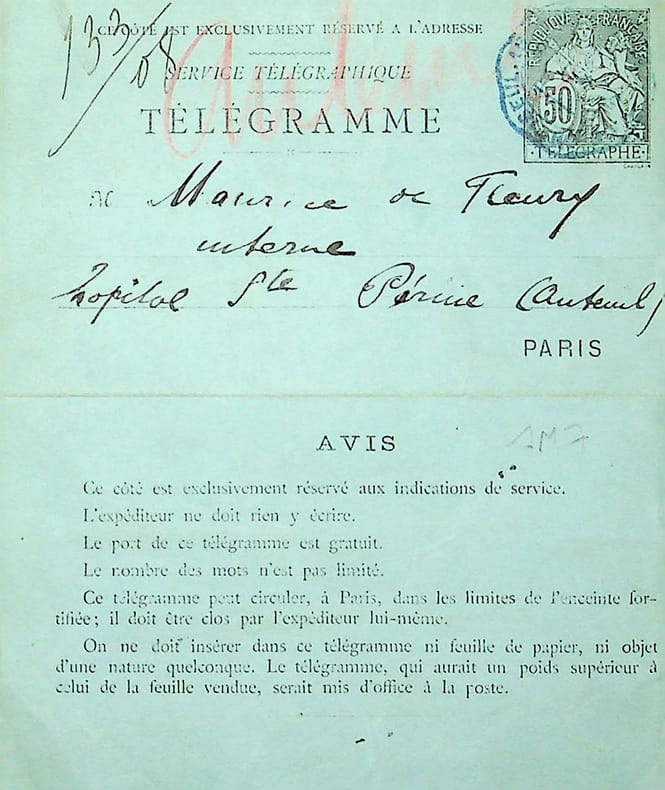 133/08
CE CÔTÉ EST EXCLUSIVEMENT RÉSERVÉ A L'ADRESSE
SERVICE TÉLÉGRAPHIQUE
TÉLÉGRAMME
REPUBLIQUE FRANÇAISE
50
TÉLÉGRAPHE
M Maurice de Fleury
interne
hopital Ste Périne (Auteuil)
PARIS
AVIS
Ce côté est exclusivement réservé aux indications de service.
L'expéditeur ne doit rien y écrire.
Le port de ce télégramme est gratuit.
Le nombre des mots n'est pas limité.
Ce télégramme peut circuler, à Paris, dans les limites de l'enceinte for-
tifiée; il doit être clos par l'expéditeur lui-même.
On ne doit insérer dans ce télégramme ni feuille de papier, ni objet
d'une nature quelconque. Le télégramme, qui aurait un poids supérieur à
celui de la feuille vendue, serait mis d'office à la poste.